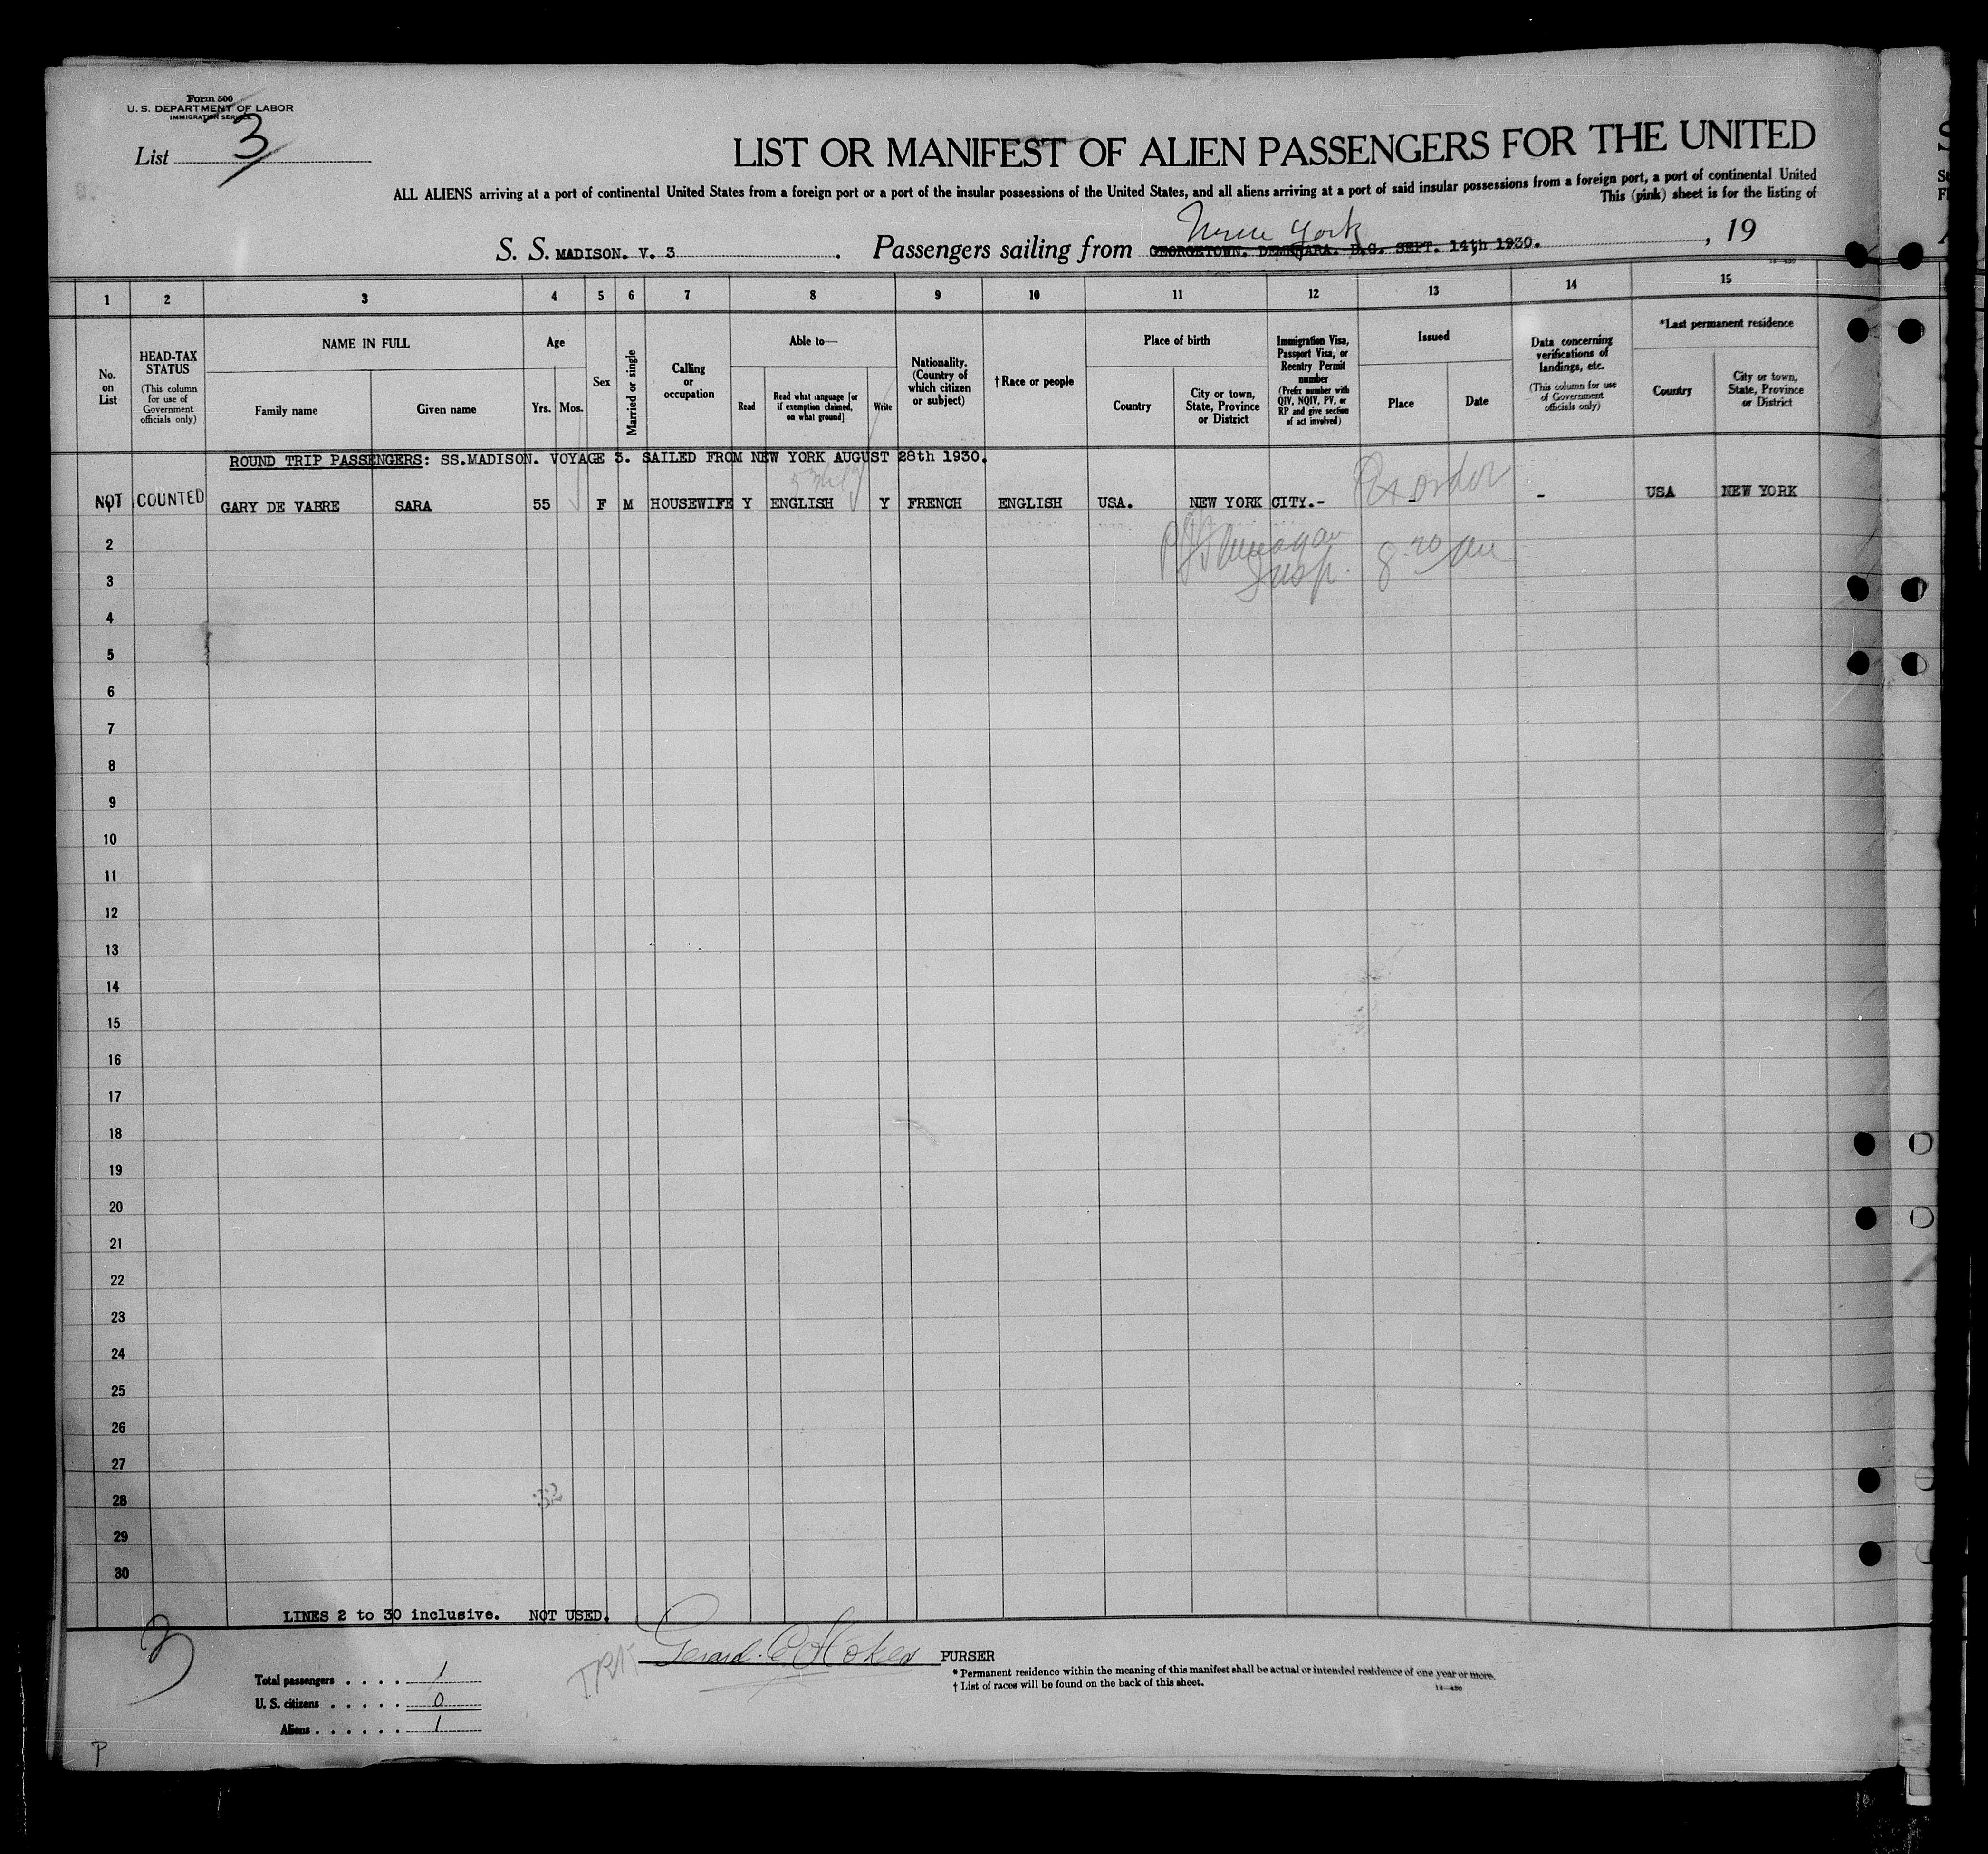 Form 500
U. S. DEPARTMENT OF LABOR
IMMIGRATION SERVICE
List 3
LIST OR MANIFEST OF ALIEN PASSENGERS FOR THE UNITED
ALL ALIENS arriving at a port of continental United States from a foreign port or a port of the insular possessions of the United States, and all aliens arriving at a port of said insular possessions from a foreign port, a port of continental United
This (pink) sheet is for the listing of
New York
S. S. MADISON. V. 3 . Passengers sailing from GEORGETOWN. DEMERARA. B.G. SEPT. 14th 1930. , 19
1 2 3 4 5 6 7 8 9 10 11 12 13 14 15
No. on List
HEAD-TAX STATUS (This column for use of Government officials only)
NAME IN FULL
Family name Given name
Age
Yrs. Mos.
Sex
Married or single
Calling or occupation
Able to—
Read
Read what language [or if exemption claimed, on what ground]
Write
Nationality. (Country of which citizen or subject)
† Race or people
Place of birth
Country
City or town, State, Province or District
Immigration Visa, Passport Visa, or Reentry Permit number (Prefix number with QIV, NQIV, PV, or RP and give section of act involved)
Issued
Place Date
Data concerning verifications of landings, etc. (This column for use of Government officials only)
*Last permanent residence
Country
City or town, State, Province or District
ROUND TRIP PASSENGERS: SS.MADISON. VOYAGE 3. SAILED FROM NEW YORK AUGUST 28th 1930.
NOT COUNTED GARY DE VABRE SARA 55 F M HOUSEWIFE Y ENGLISH Y FRENCH ENGLISH USA. NEW YORK CITY.- - - USA NEW YORK
Insp.
2
3
4
5
6
7
8
9
10
11
12
13
14
15
16
17
18
19
20
21
22
23
24
25
26
27
28 32
29
30
LINES 2 to 30 inclusive. NOT USED.
PURSER
Total passengers . . . . 1
U. S. citizens . . . . . 0
Aliens . . . . . . 1
* Permanent residence within the meaning of this manifest shall be actual or intended residence of one year or more.
† List of races will be found on the back of this sheet.
P